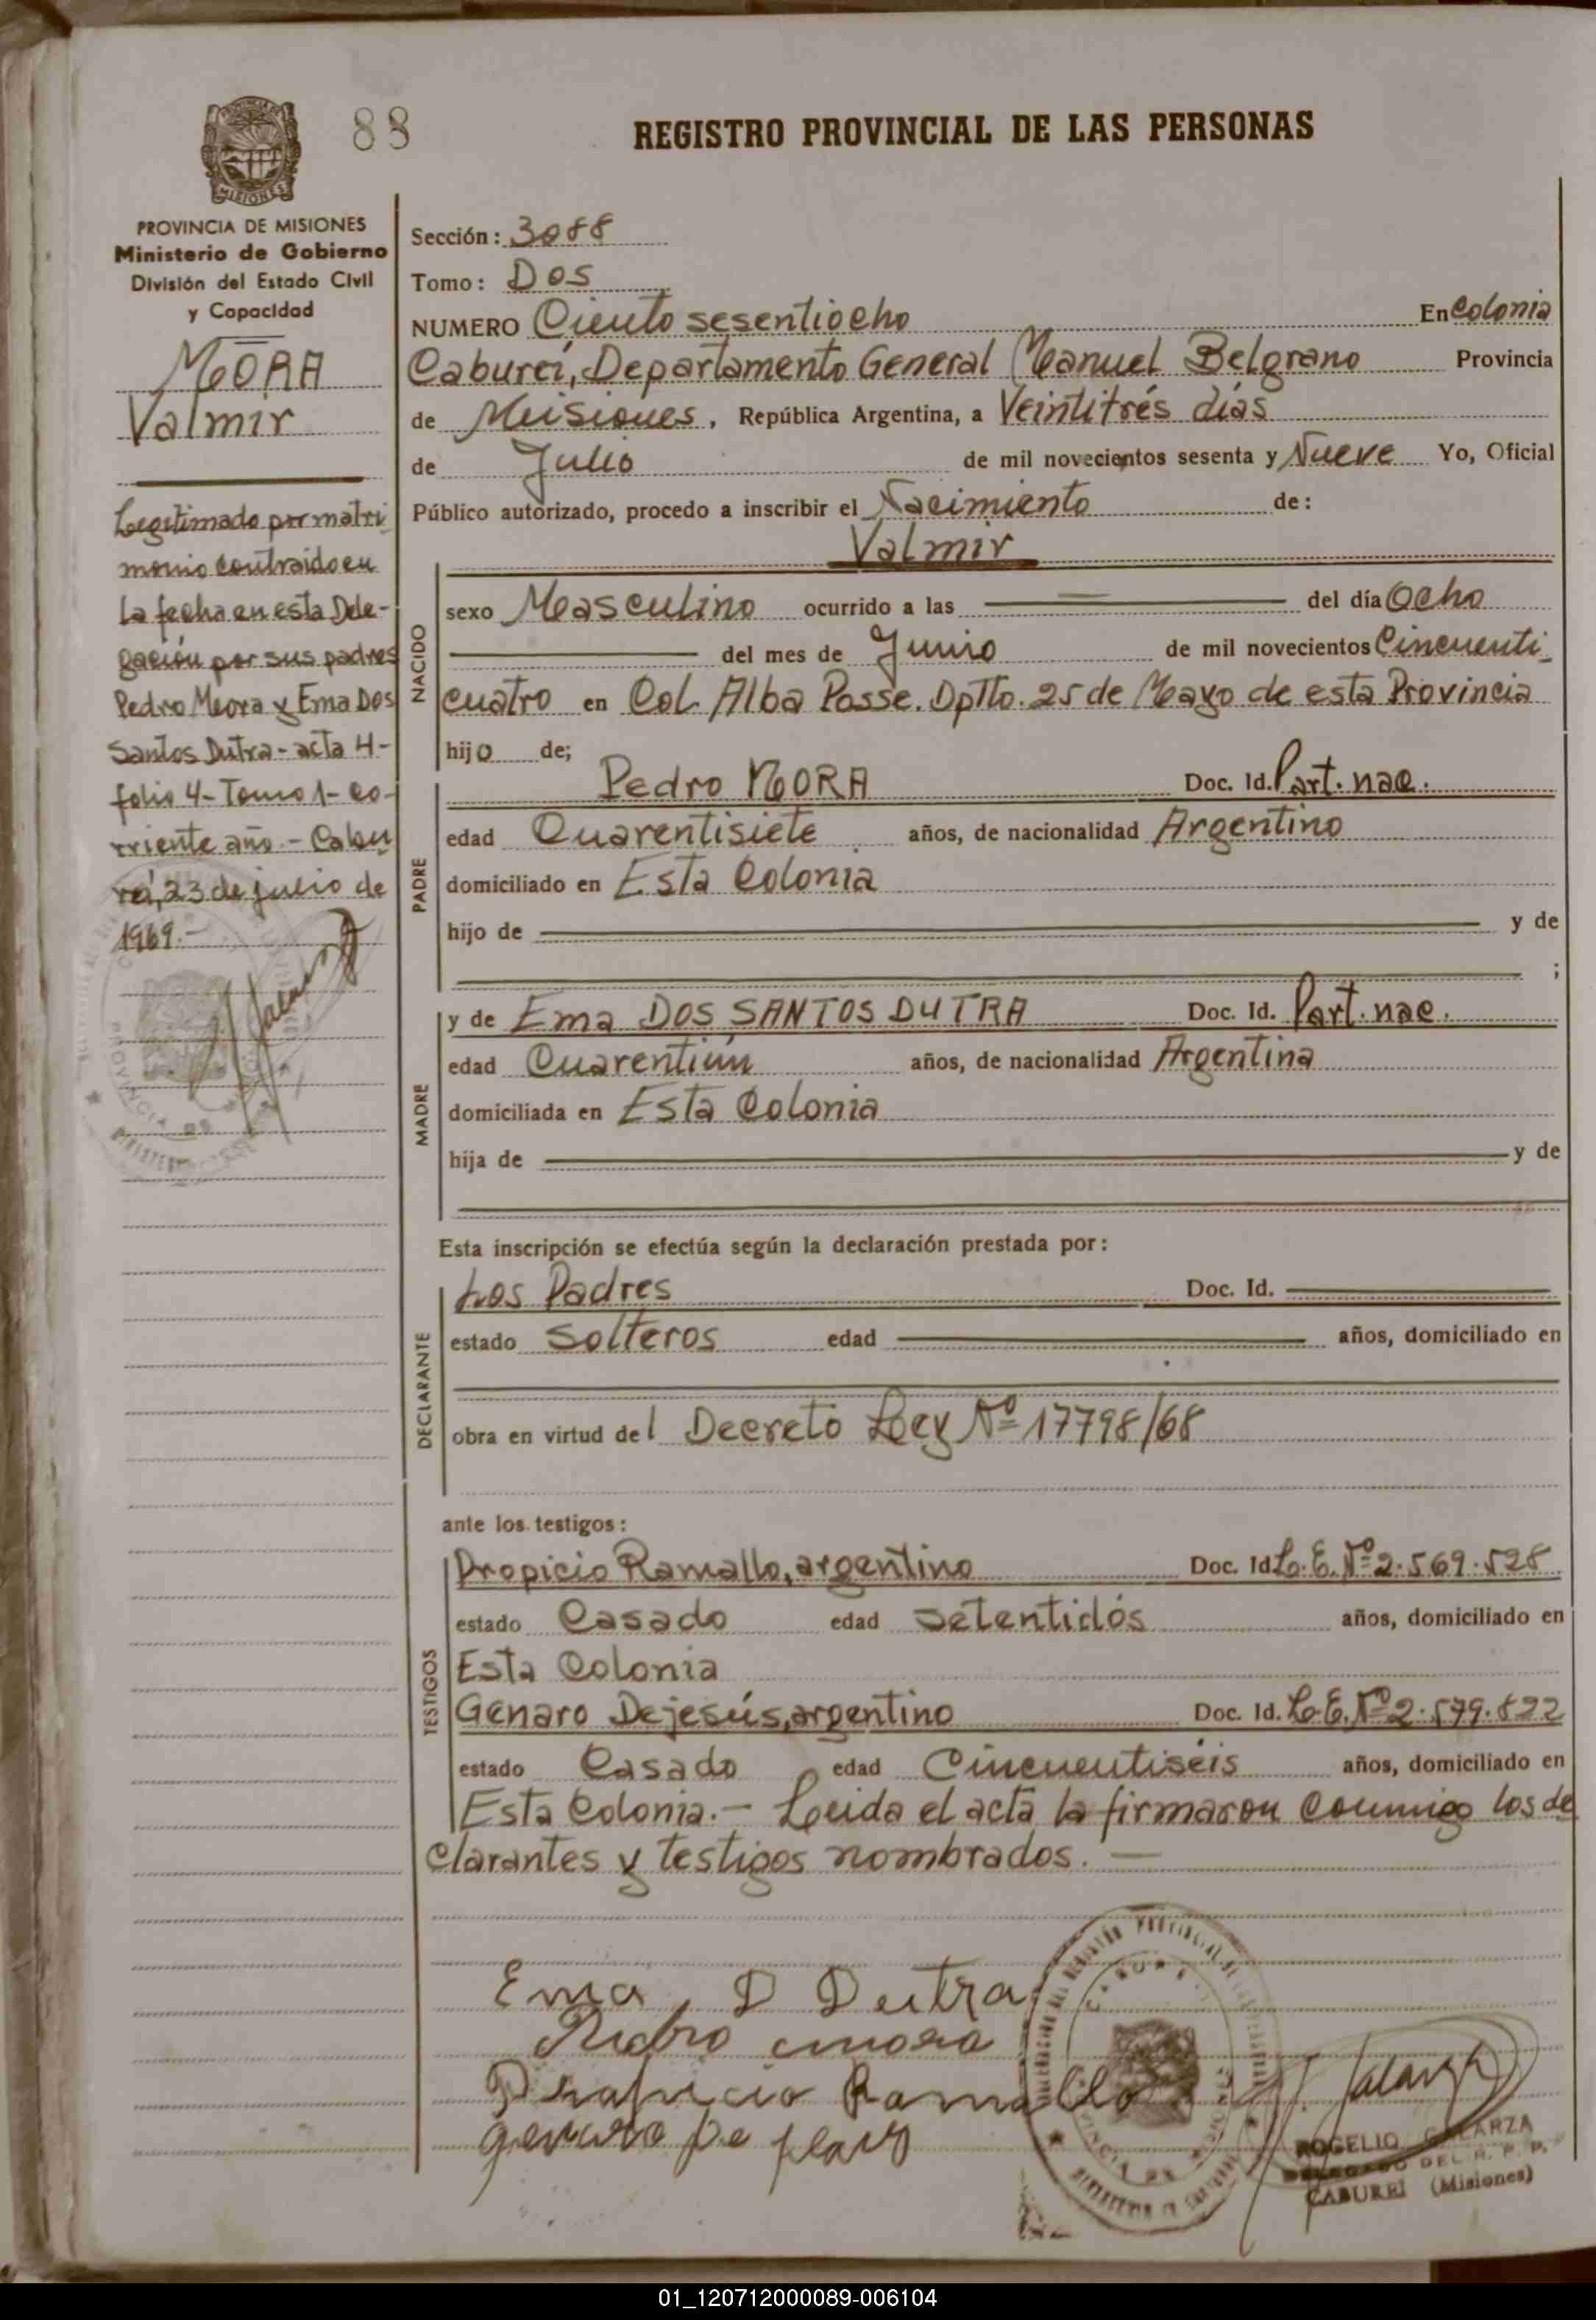 88
REGISTRO PROVINCIAL DE LAS PERSONAS
PROVINCIA DE MISIONES
Ministerio de Gobierno
División del Estado Civil
y Capacidad
MORA
Valmir
Legitimado por matri
monio contraido en
la fecha en esta Dele-
gación por sus padres
Pedro Mora y Ema Dos
Santos Dutra - acta 4-
folio 4- Tomo 1- co-
rriente año.- Cabu
reí, 23 de julio de
1969.-
Sección: 3088
Tomo: Dos
NUMERO Ciento sesentiocho En Colonia
Cabureí, Departamento General Manuel Belgrano Provincia
de Misiones, República Argentina, a Veintitrés días
de Julio de mil novecientos sesenta y Nueve Yo, Oficial
Público autorizado, procedo a inscribir el Nacimiento de:
Valmir
NACIDO
sexo Masculino ocurrido a las del día Ocho
del mes de Junio de mil novecientos Cincuenti
cuatro en Col. Alba Posse. Dptto. 25 de Mayo de esta Provincia
hijo de;
PADRE
Pedro MORA Doc. Id. Part. nac.
edad Cuarentisiete años, de nacionalidad Argentino
domiciliado en Esta Colonia
hijo de y de
;
MADRE
y de Ema DOS SANTOS DUTRA Doc. Id. Part. nac.
edad Cuarentiún años, de nacionalidad Argentina
domiciliada en Esta Colonia
hija de y de
Esta inscripción se efectúa según la declaración prestada por:
DECLARANTE
Los Padres Doc. Id.
estado Solteros edad años, domiciliado en
obra en virtud del Decreto Ley Nº 17798/68
ante los testigos:
TESTIGOS
Propicio Ramallo, argentino Doc. Id. L.E. Nº 2.569.528
estado Casado edad Setentidós años, domiciliado en
Esta Colonia
Genaro Dejesús, argentino Doc. Id. L.E. Nº 2.579.822
estado Casado edad Cincuentiséis años, domiciliado en
Esta Colonia.- Leida el acta la firmaron conmigo los de
clarantes y testigos nombrados.
Ema D Dutra
Pedro mora
Propicio Ramallo
genaro De
ROGELIO GALARZA
DELEGADO DEL R. P. P.
CABUREÍ (Misiones)
01_120712000089-006104